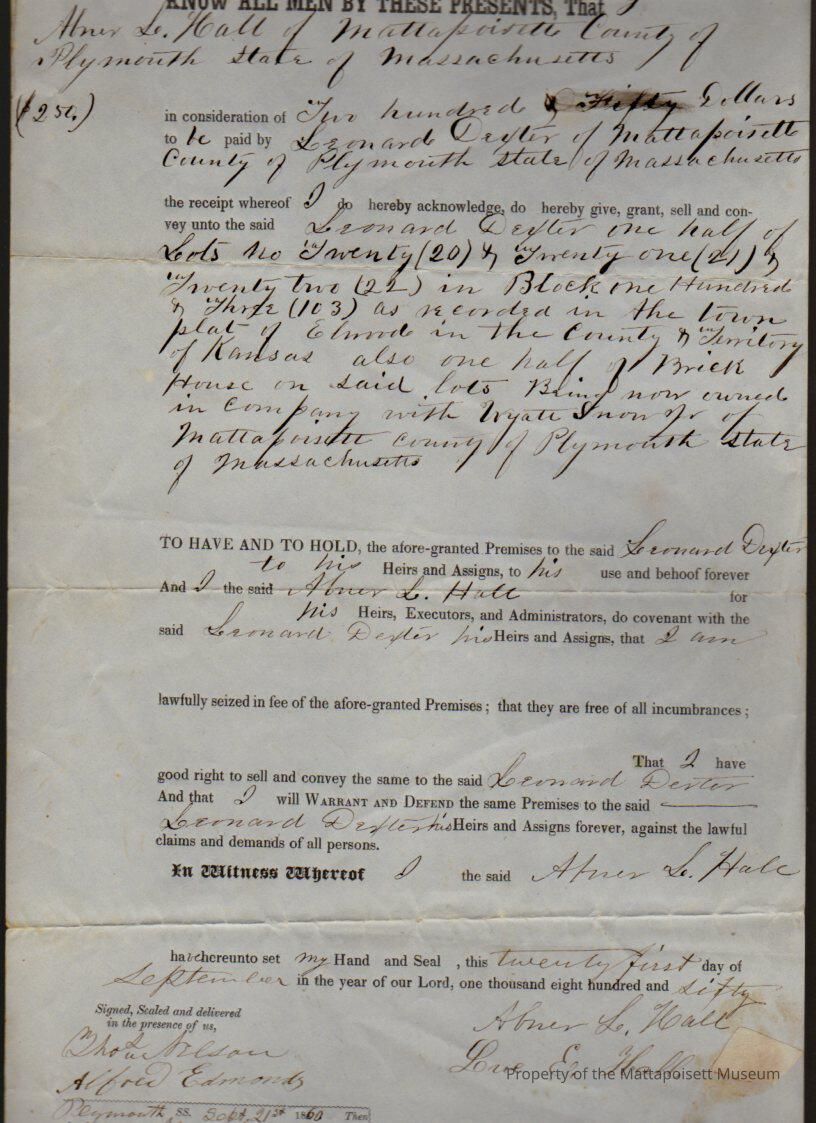 KNOW ALL MEN BY THESE PRESENTS, That
Abner L. Hall of Mattapoisett County of
Plymouth State of Massachusetts
($250)
in consideration of Two hundred & Fifty Dollars
to be paid by Leonard Dexter of Mattapoisett
County of Plymouth State of Massachusetts
the receipt whereof I do hereby acknowledge, do hereby give, grant, sell and con-
vey unto the said Leonard Dexter one half of
Lots No Twenty (20) & Twenty one (21) &
Twenty two (22) in Block one Hundred
& Three (103) as recorded in the town
plat of Elwood in the County & Territory
of Kansas also one half of Brick
House on said lots Being now owned
in Company with Wyatt Snow Jr of
Mattapoisett County of Plymouth State
of Massachusetts
TO HAVE AND TO HOLD, the afore-granted Premises to the said Leonard Dexter
to his Heirs and Assigns, to his use and behoof forever
And I the said Abner L. Hall for
his Heirs, Executors, and Administrators, do covenant with the
said Leonard Dexter his Heirs and Assigns, that I am
lawfully seized in fee of the afore-granted Premises; that they are free of all incumbrances;
That I have
good right to sell and convey the same to the said Leonard Dexter
And that I will WARRANT AND DEFEND the same Premises to the said
Leonard Dexter his Heirs and Assigns forever, against the lawful
claims and demands of all persons.
In Witness Whereof I the said Abner L. Hall
have hereunto set my Hand and Seal, this twenty first day of
September in the year of our Lord, one thousand eight hundred and sixty
Signed, Sealed and delivered
in the presence of us,
Abner L. Hall
Nelson
E. Hall
Alfred Edmonds
Property of the Mattapoisett Museum
Plymouth SS. Sept. 21st 1860 Then